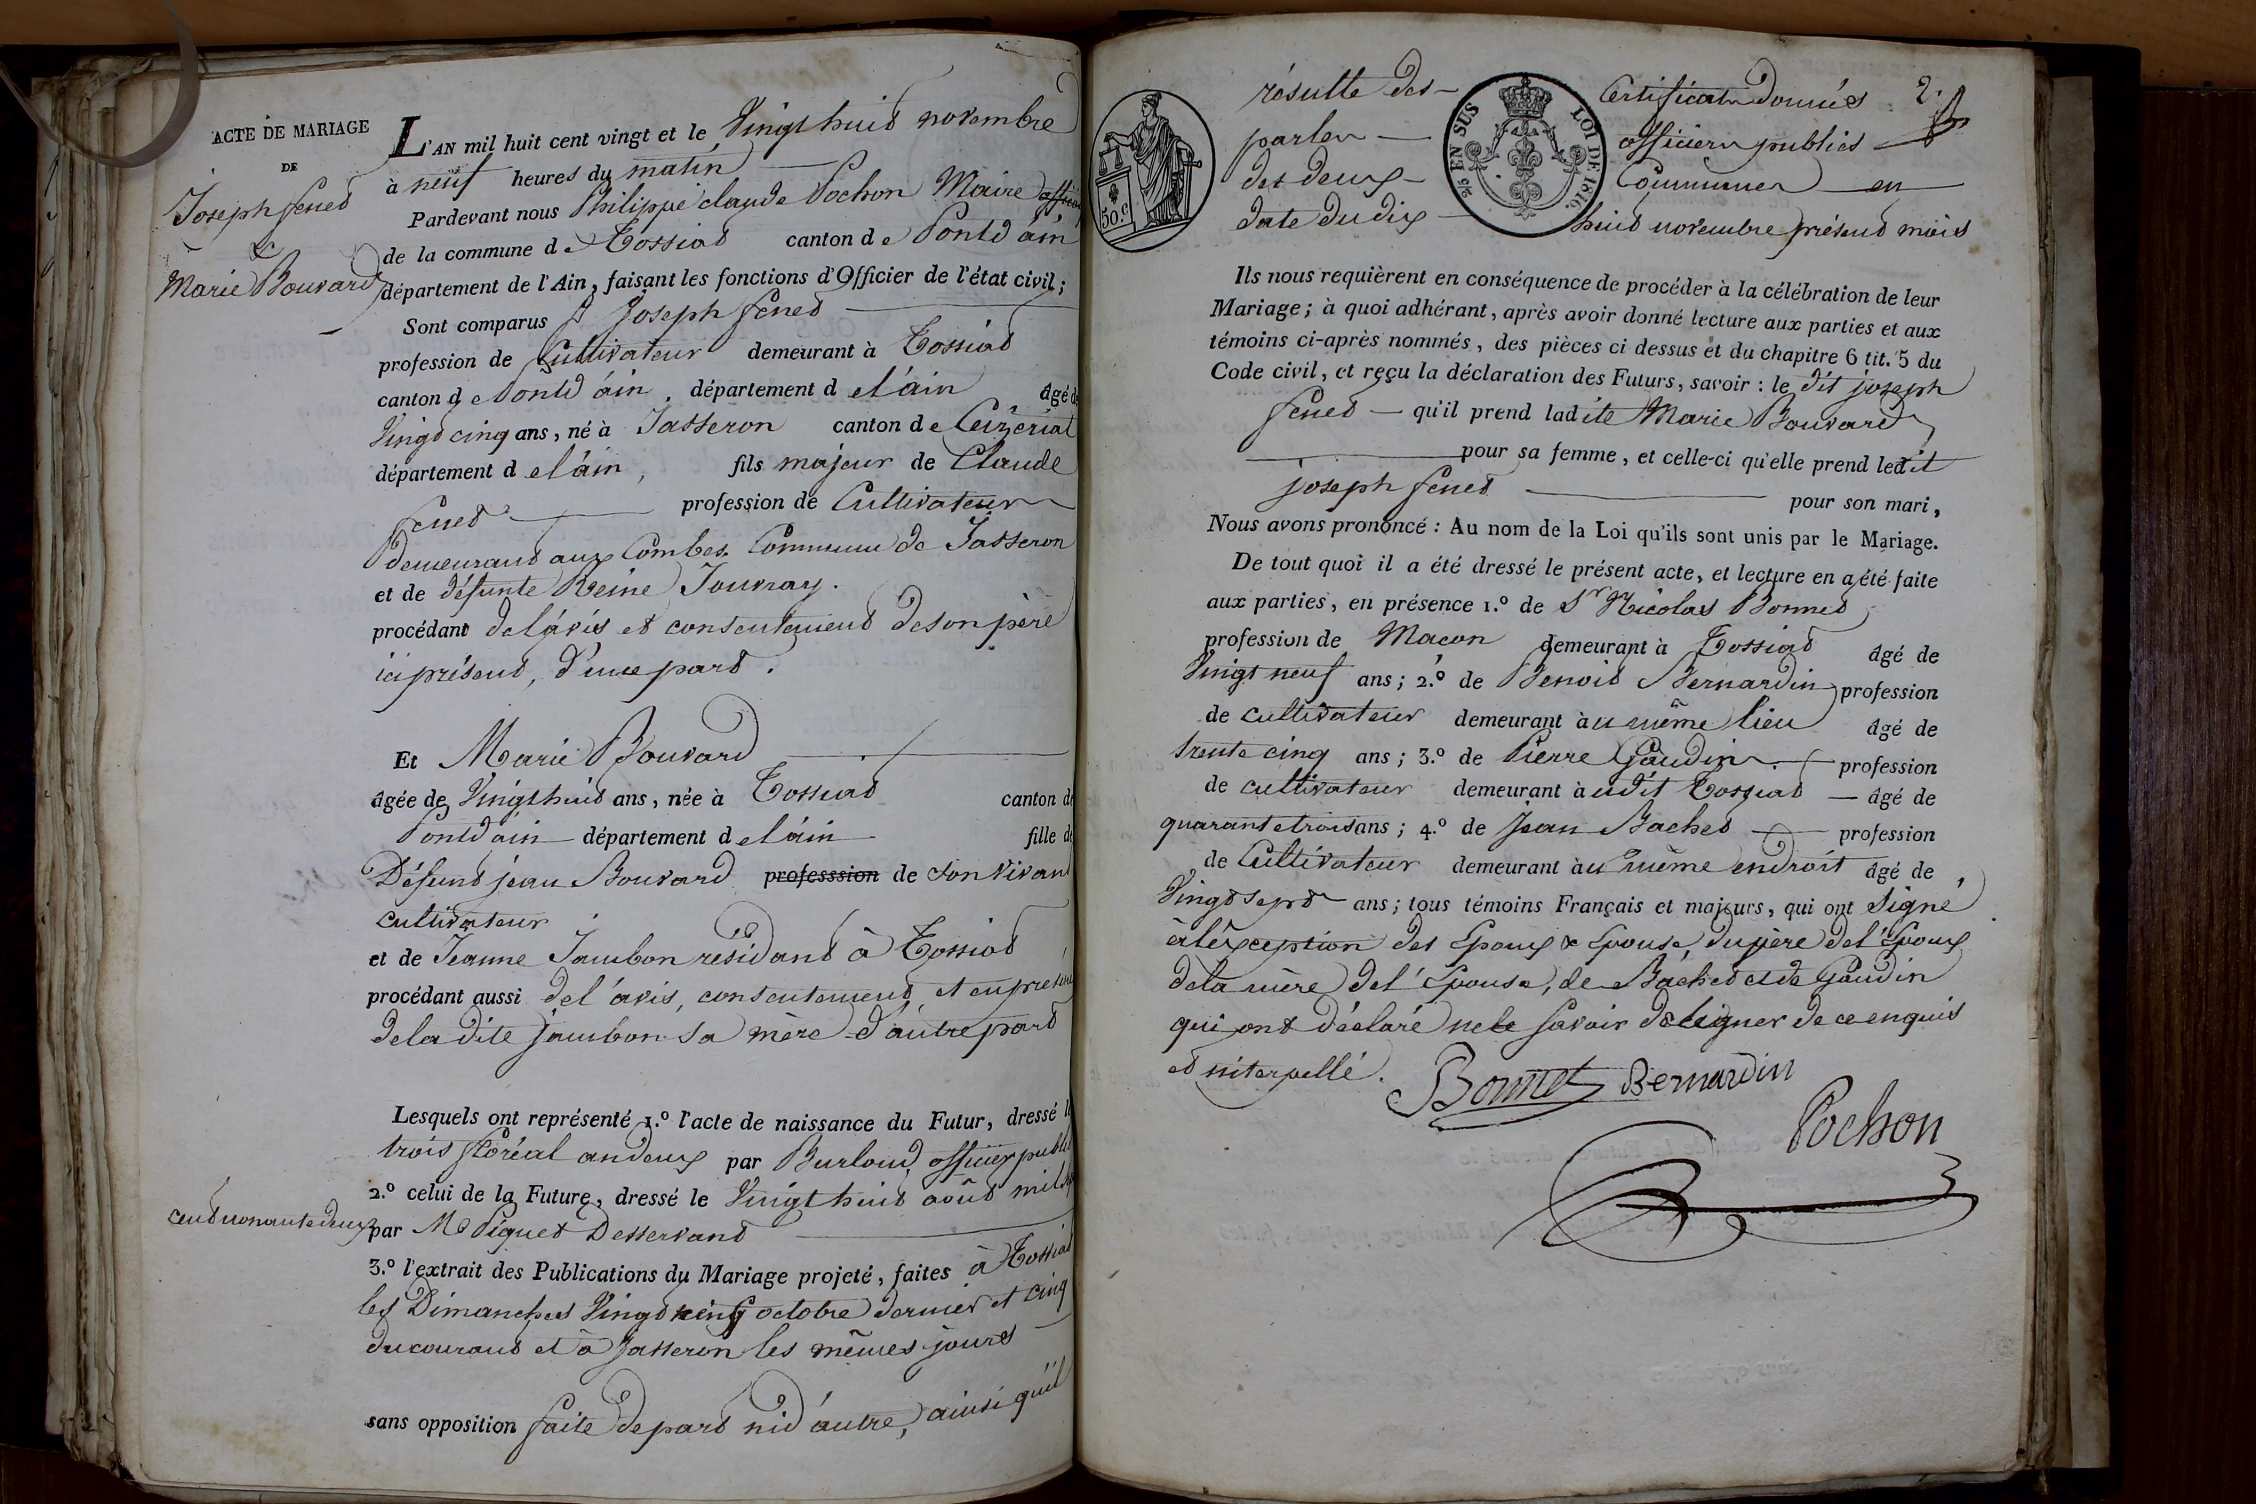 ACTE DE MARIAGE
DE
Joseph fenet
&
Marie Bouvard
L'AN mil huit cent vingt et le Vingt huit novembre
à neuf heures du matin
Pardevant nous Philippe claude Pochon Maire
de la commune de Tossiat canton de Pontd'ain
département de l'Ain, faisant les fonctions d'Officier de l'état civil;
Sont comparus Joseph fenet
profession de Cultivateur demeurant à Tossiat
canton de Pontd'ain, département de l'ain âgé de
Vingt cinq ans, né à Jasseron canton de Ceizériat
département de l'ain, fils majeur de Claude
fenet profession de Cultivateur
demeurant aux Combes Commune de Jasseron
et de défunte Reine Jouvray.
procédant de l'avis et consentement de son père
ici présent, d'une part.
Et Marie Bouvard
âgée de Vingt huit ans, née à Tossiat canton de
Pontd'ain département de l'ain fille de
Défunt jean Bouvard professsion de son vivant
cultivateur
et de Jeanne Jambon résidant à Tossiat
procédant aussi de l'avis, consentement et en présence
de la dite jambon sa mère d'autre part
Lesquels ont représenté 1.º l'acte de naissance du Futur, dressé le
trois floréal an deux par Burloud officier public
2.º celui de la Future, dressé le Vingt huit août mil sept
cent nonante deux par M Piquet Desservant
3.º l'extrait des Publications du Mariage projeté, faites à Tossiat
les Dimanches Vingt neuf octobre dernier et cinq
du courant et à Jasseron les mêmes jours
sans opposition faite de part ni d'autre, ainsi qu'il
résulte des Certificats donnés 2.
par les officiers publics
des deux Communes en
date du dix huit novembre présent mois
50.c
5/10 EN SUS LOI DE 1816.
Ils nous requièrent en conséquence de procéder à la célébration de leur
Mariage; à quoi adhérant, après avoir donné lecture aux parties et aux
témoins ci-après nommés, des pièces ci dessus et du chapitre 6 tit. 5 du
Code civil, et reçu la déclaration des Futurs, savoir: le dit joseph
fenet qu'il prend ladite Marie Bouvard
pour sa femme, et celle-ci qu'elle prend ledit
joseph fenet pour son mari,
Nous avons prononcé: Au nom de la Loi qu'ils sont unis par le Mariage.
De tout quoi il a été dressé le présent acte, et lecture en a été faite
aux parties, en présence 1.º de Sr Nicolas Bonnet
profession de Macon demeurant à Tossiat âgé de
Vingt neuf ans; 2.º de Benoit Bernardin profession
de cultivateur demeurant au même lieu âgé de
trente cinq ans; 3.º de Pierre Gaudin profession
de cultivateur demeurant audit Tossiat âgé de
quarante trois ans; 4.º de Jean Bachet profession
de Cultivateur demeurant au même endroit âgé de
Vingt sept ans; tous témoins Français et majeurs, qui ont signé
à l'exception des Epoux & Epouse, du père de l'Epoux
de la mère de l'Epouse, de Bachet et de Gaudin
qui ont déclaré ne le savoir de signer de ce enquis
et interpellé.
Bonnet Bernardin
Pochon